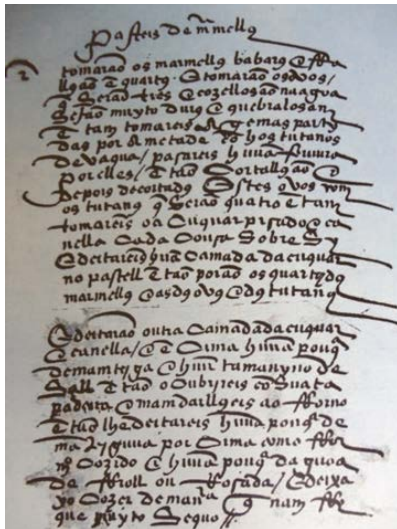 Pasteis de mmello
tomarão os marmellos babaros e
e quartos e tomarão os ovos
q serão tres e cozellos ão na agua
q sejão muyto duros e quebralos an
E tam tomareis as gemas party
das por ametade E hos tutanos
de vaqua / pasareis huua fervura
por elles / E tão cortallos ão e
depois de cortados estes ovos com
os tutanos q serão quatro E tam
tomareis o acuquar pisado e ca
nella cada cousa sobre sy
E deitareis huua camada dacuquar
no pastell E tão porão os quartos do
marmello e as dos ovos e dos tutanos
E deitarão outra camada dacuquar
E canella / e E cima huua pouqa
de mamteyga e huu tamanyno de
sall E tão o cubrireis co sua ta
padeira e mandallo eis ao fforno
E tão lhe deitareis huua pouqa de
manteiguua por cima como ffor
cozido e huua pouqa dagoa
de ffroll ou Rosada / E deixa
yo cozer de manra q nam ffi
que muyto sequo //